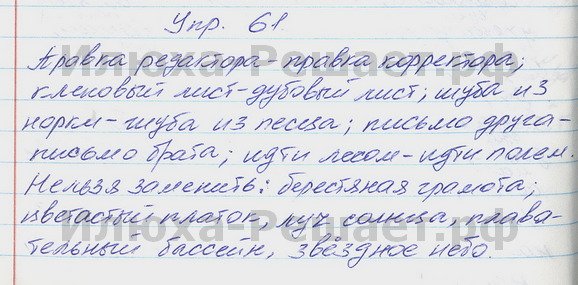 Упр. 61.
Правка редактора - правка корректора;
кленовый лист - дубовый лист; шуба из
норки - шуба из песца; письмо друга -
письмо брата; идти лесом - идти полем.
Нельзя заменить: берестяная грамота;
цветастый платок, луч солнца, плава-
тельный бассейн, звёздное небо.
Илюха-Решает.рф
Илюха-Решает.рф